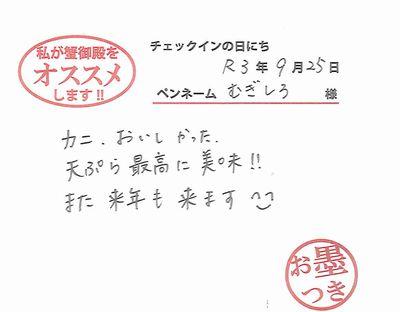 私が蟹御殿を
オススメ
します!!
チェックインの日にち
R3年9月25日
ペンネーム むぎしろ 様
カニ、おいしかった、
天ぷら最高に美味!!
また来年も来ます
お墨
つき